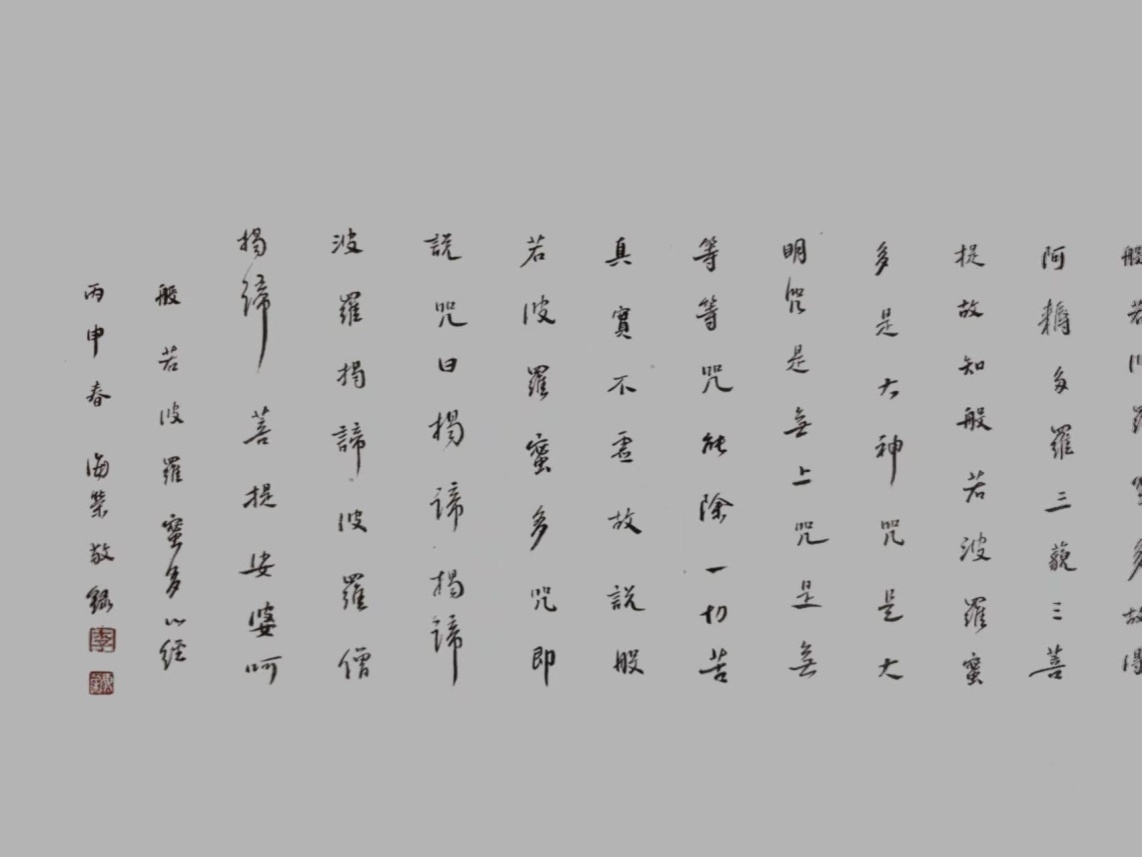 般若波羅蜜多故得
阿耨多羅三藐三菩
提故知般若波羅蜜
多是大神咒是大
明咒是無上咒是無
等等咒能除一切苦
真實不虛故說般
若波羅蜜多咒即
說咒曰揭諦揭諦
波羅揭諦波羅僧
揭締菩提娑婆呵
般若波羅蜜多心經
丙申春海榮敬錄